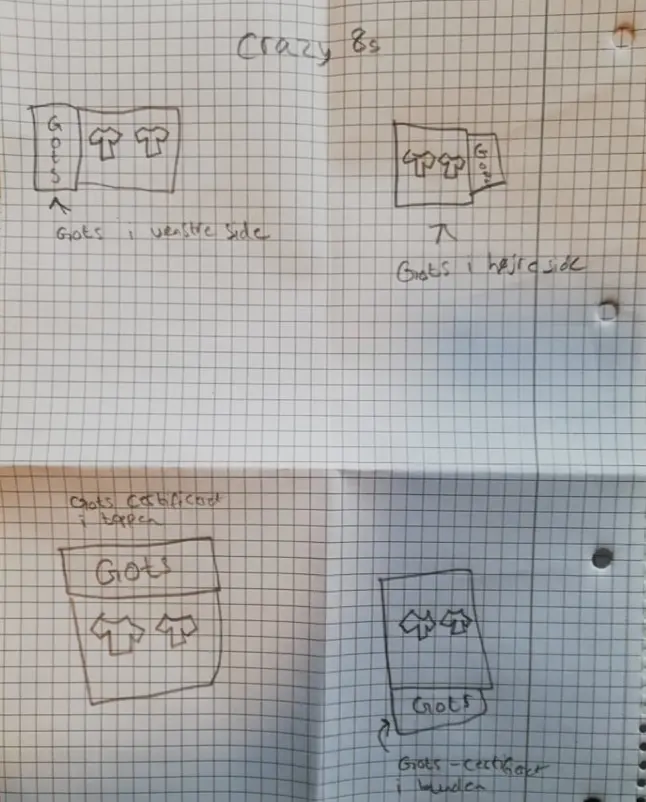 Crazy 8s
Gots
Gots i venstre side
Gots
Gots i højre side
Gots certificat
i toppen
Gots
Gots
Gots - certificat
i bunden